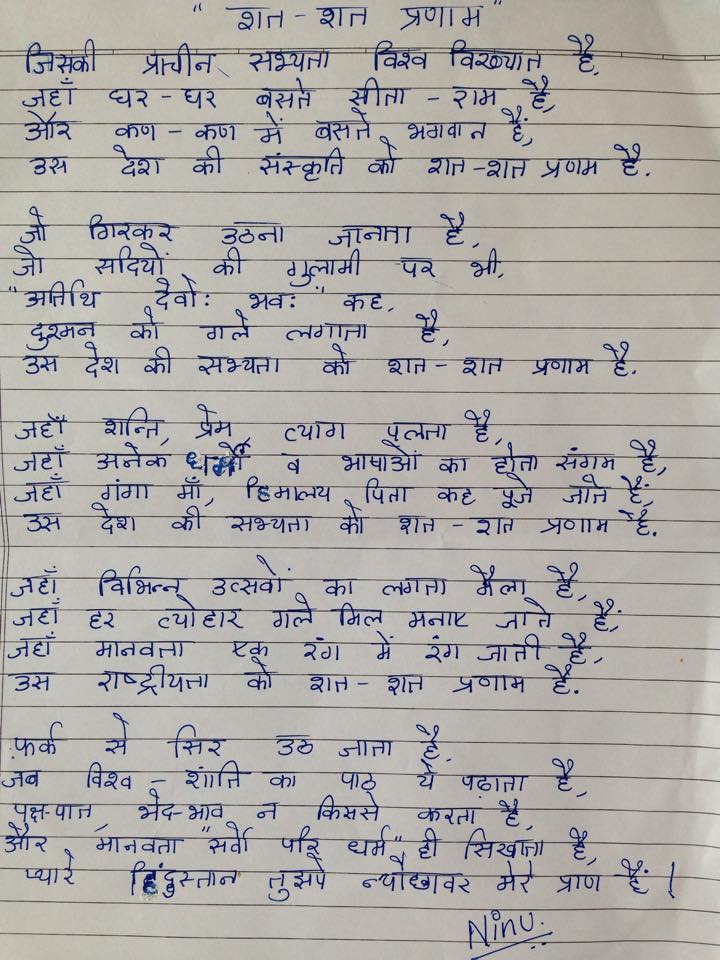 " शत - शत प्रणाम "
जिसकी प्राचीन सभ्यता विश्व विख्यात है,
जहाँ घर - घर बसते सीता - राम है,
और कण - कण में बसते भगवान हैं,
उस देश की संस्कृति को शत - शत प्रणम है.
जो गिरकर उठना जानता है,
जो सदियों की गुलामी पर भी,
"अतिथि देवो: भव:" कह,
दुश्मन को गले लगाता है,
उस देश की सभ्यता को शत - शत प्रणाम है.
जहाँ शन्ति, प्रेम त्याग पलता है,
जहाँ अनेक धर्मों व भाषाओं का होता संगम है,
जहाँ गंगा माँ, हिमालय पिता कह पूजे जाते हैं,
उस देश की सभ्यता को शत - शत प्रणाम है.
जहाँ विभिन्न उत्सवों का लगता मैला है,
जहाँ हर त्योहार गले मिल मनाए जाते हैं,
जहाँ मानवता एक रंग में रंग जाती है,
उस राष्ट्रीयता को शत - शत प्रणाम है.
फ़र्क से सिर उठ जाता है,
जब विश्व - शांति का पाठ ये पढ़ाता है,
पक्ष-पात, भेद-भाव न किससे करता है,
और मानवता "सर्वो परि धर्म" ही सिखाता है,
प्यारे हिंदुस्तान तुझपे न्यौछावर मेरे प्राण हैं |
Ninu.